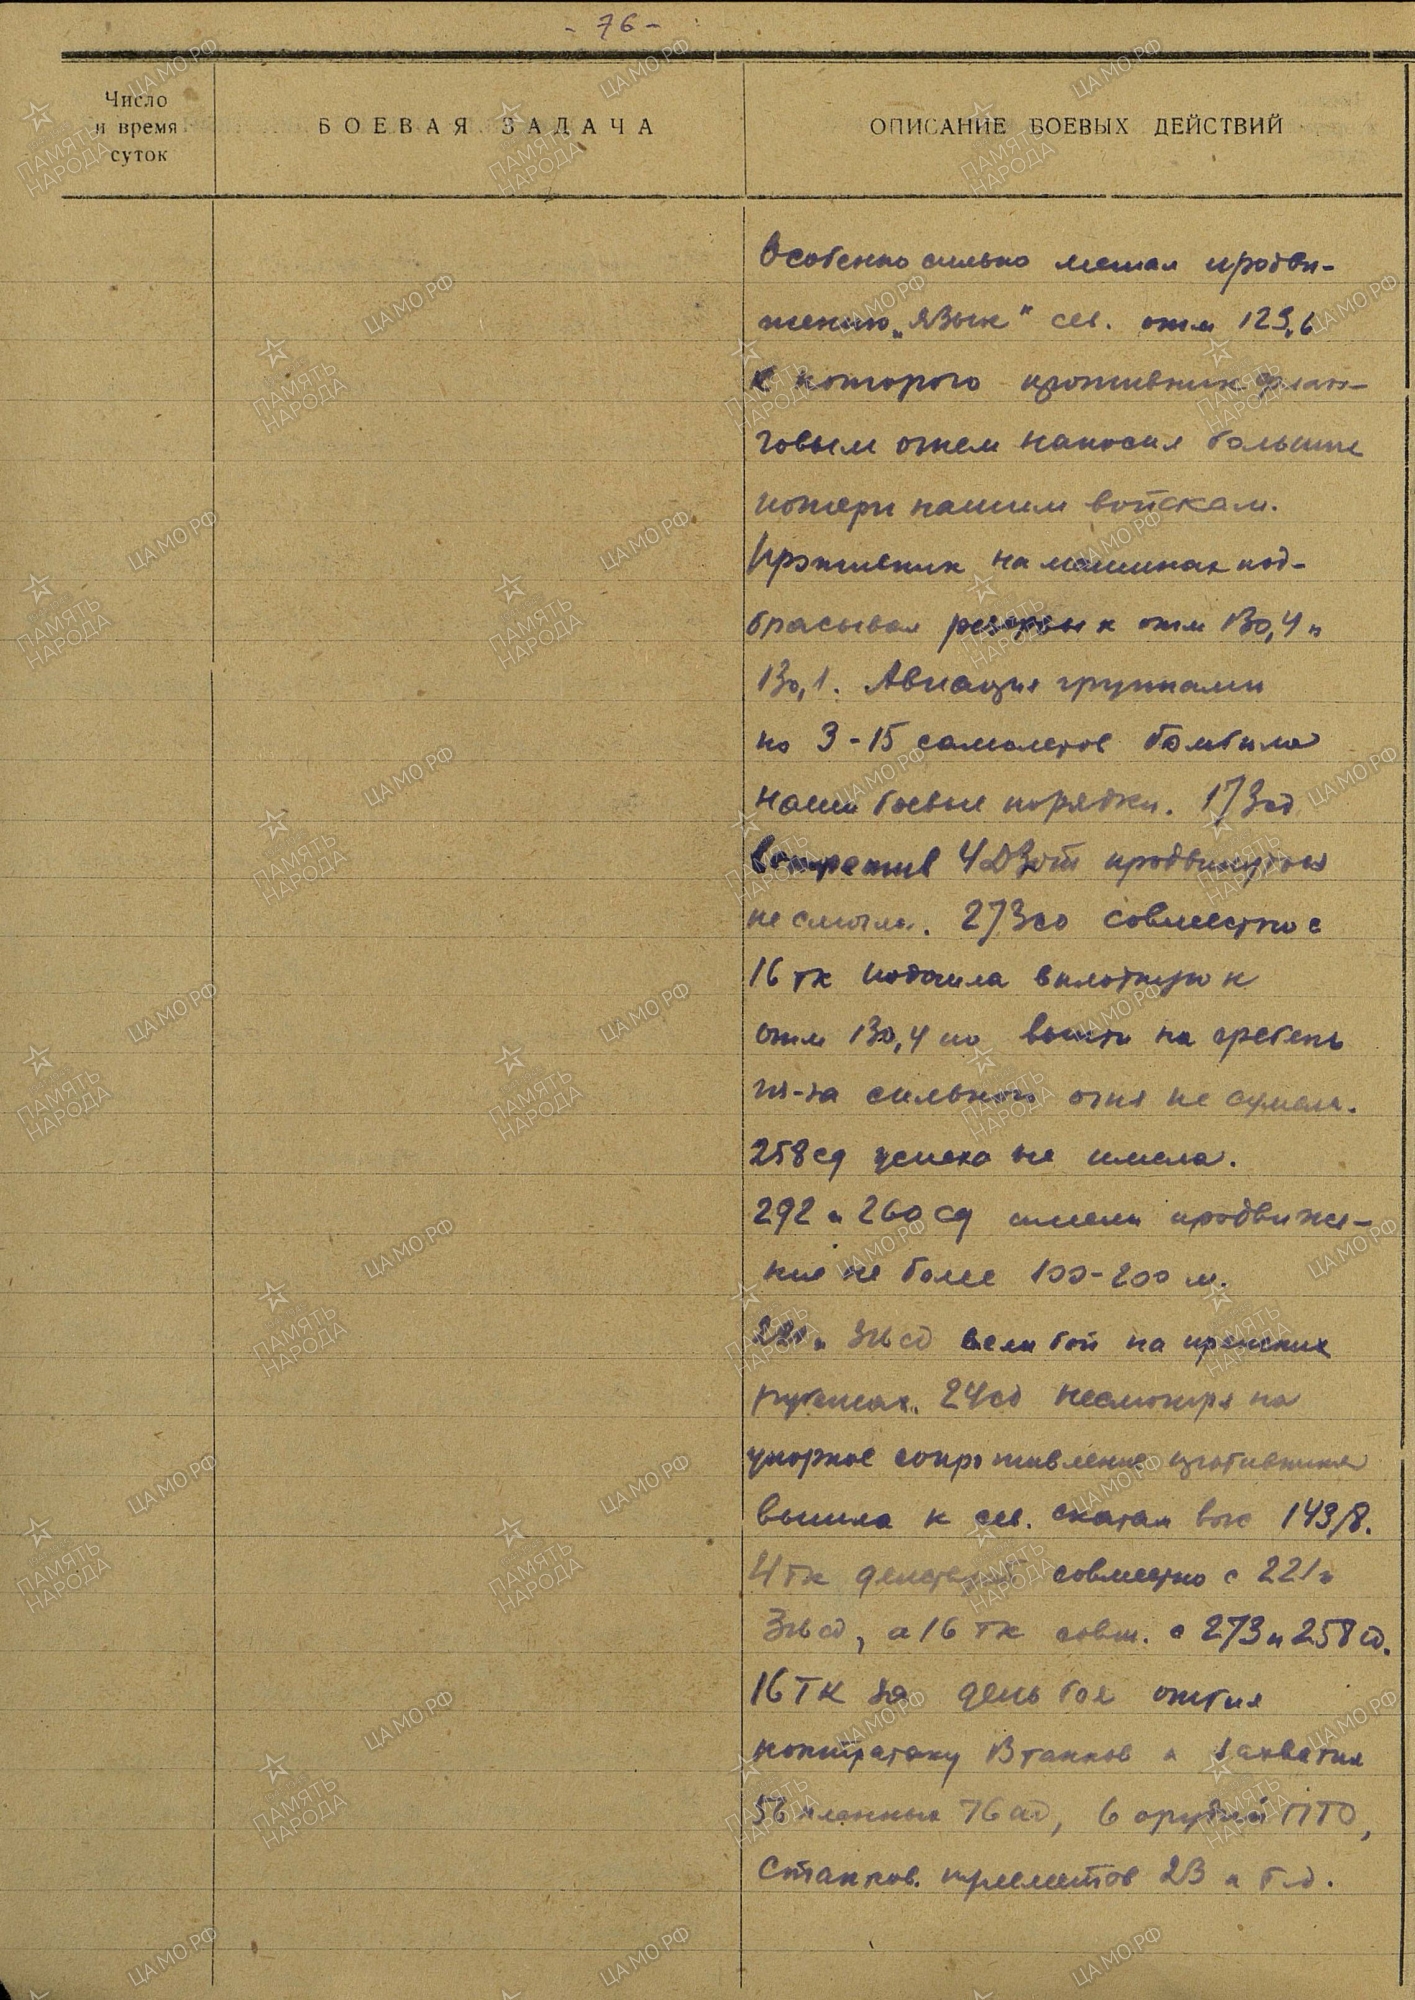 - 76 -
Число
и время
суток
БОЕВАЯ ЗАДАЧА
ОПИСАНИЕ БОЕВЫХ ДЕЙСТВИЙ
Особенно сильно мешал продви-
жению „язык“ сев. отм 129,6
с которого противник флан-
говым огнем наносил большие
потери нашим войскам.
Противник на машинах под-
брасывал резервы к отм 130,4 и
130,1. Авиация группами
по 3-15 самолетов бомбила
наши боевые порядки. 173 сд
встретив 4 ДЗОТ продвинуться
не смогла. 273 сд совместно с
16 тк подошла вплотную к
отм 130,4 но выйти на гребень
из-за сильного огня не сумела.
258 сд успеха не имела.
292 и 260 сд имели продвиже-
ние не более 100-200 м.
221 и сд вели бой на прежних
рубежах. 24 сд несмотря на
упорное сопротивление противника
вышла к сев. скатам выс 143,8.
4 тк совместно с 221 и
сд, а 16 тк совм. с 273 и 258 сд.
16 ТК за день боя отбил
контратаку 13 танков и захватил
пленных 76 ад, 6 орудий ПТО,
Станков. пулеметов 23 и т.д.